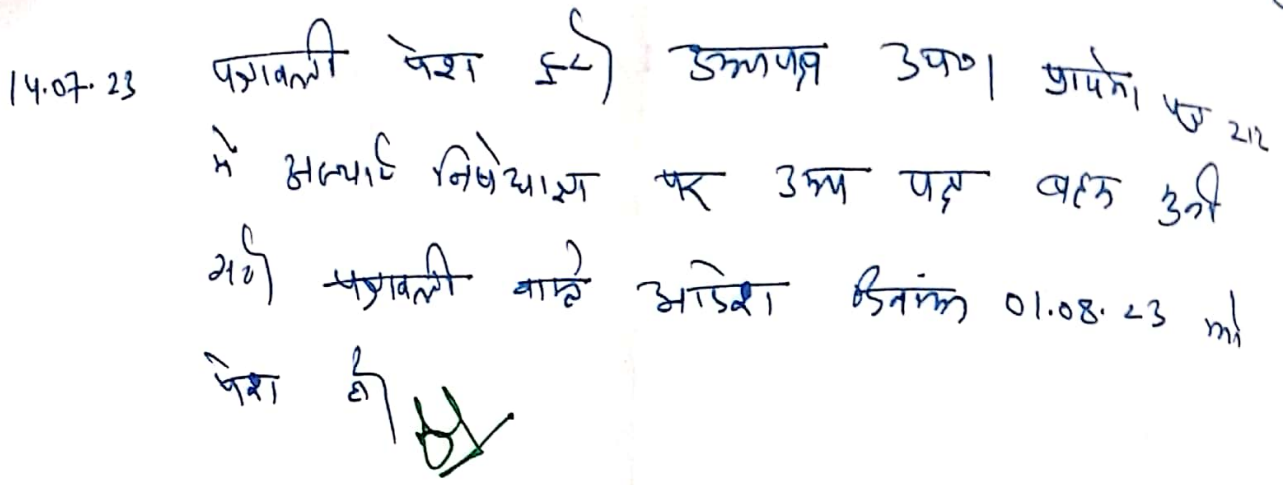 14.07.23 पत्रावली पेश हुई। उभयपक्ष उप०। प्रार्थना पत्र 212
में अस्थाई निषेधाज्ञा पर उभय पक्ष बहस सुनी
गई। पत्रावली वास्ते आदेश दिनांक 01.08.23 को
पेश हो।